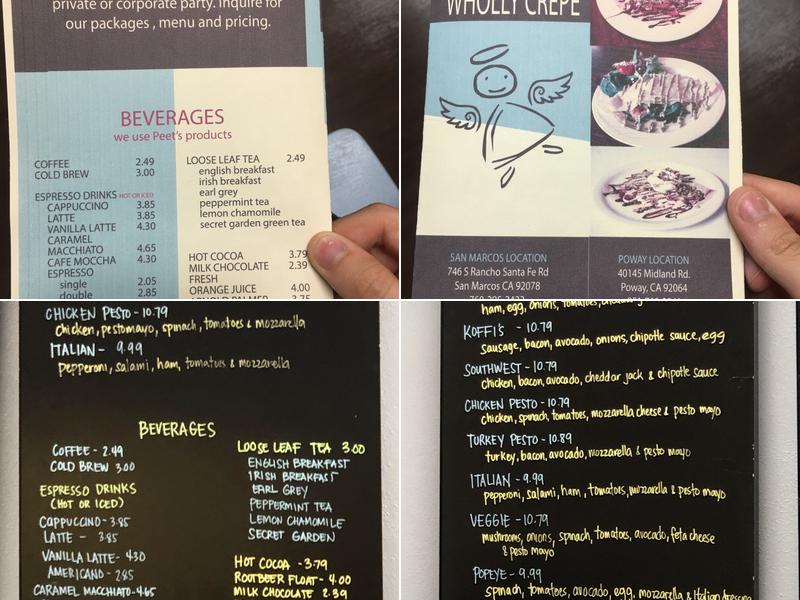 private or corporate party. Inquire for
our packages , menu and pricing.
BEVERAGES
we use Peet's products
COFFEE 2.49
COLD BREW 3.00
ESPRESSO DRINKS HOT OR ICED
CAPPUCCINO 3.85
LATTE 3.85
VANILLA LATTE 4.30
CARAMEL
MACCHIATO 4.65
CAFE MOCCHA 4.30
ESPRESSO
single 2.05
double 2.85
LOOSE LEAF TEA 2.49
english breakfast
irish breakfast
earl grey
peppermint tea
lemon chamomile
secret garden green tea
HOT COCOA 3.79
MILK CHOCOLATE 2.39
FRESH
ORANGE JUICE 4.00
ARNOLD PALMER 3.75
WHOLLY CREPE
SAN MARCOS LOCATION
746 S Rancho Santa Fe Rd
San Marcos CA 92078
POWAY LOCATION
40145 Midland Rd.
Poway, CA 92064
CHICKEN PESTO - 10.79
chicken, pestomayo, spinach, tomatoes & mozzarella
ITALIAN - 9.99
pepperoni, salami, ham, tomatoes & mozzarella
BEVERAGES
COFFEE - 2.49
COLD BREW 3.00
ESPRESSO DRINKS
(HOT OR ICED)
CAPPUCCINO - 3.85
LATTE - 3.85
VANILLA LATTE - 4.30
AMERICANO - 2.85
CARAMEL MACCHIATO - 4.65
LOOSE LEAF TEA 3.00
ENGLISH BREAKFAST
IRISH BREAKFAST
EARL GREY
PEPPERMINT TEA
LEMON CHAMOMILE
SECRET GARDEN
HOT COCOA - 3.79
ROOTBEER FLOAT - 4.00
MILK CHOCOLATE 2.39
ham, egg, onions, tomatoes,
KOFFI'S - 10.79
sausage, bacon, avocado, onions, chipotle sauce, egg
SOUTHWEST - 10.79
chicken, bacon, avocado, cheddar jack & chipotle sauce
CHICKEN PESTO - 10.79
chicken, spinach, tomatoes, mozzarella cheese & pesto mayo
TURKEY PESTO - 10.89
turkey, bacon, avocado, mozzarella & pesto mayo
ITALIAN - 9.99
pepperoni, salami, ham, tomatoes, mozzarella & pesto mayo
VEGGIE - 10.79
mushrooms, onions, spinach, tomatoes, avocado, feta cheese
& pesto mayo
POPEYE - 9.99
spinach, tomatoes, avocado, egg, mozzarella & Italian dressing